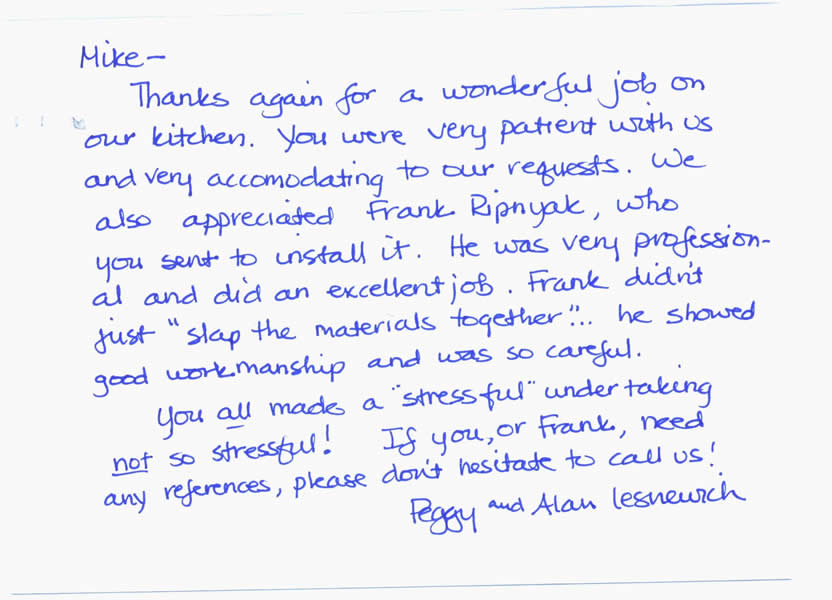 Mike—
Thanks again for a wonderful job on
our kitchen. You were very patient with us
and very accomodating to our requests. We
also appreciated Frank Ripnyak, who
you sent to install it. He was very profession-
al and did an excellent job. Frank didn't
just "slap the materials together"... he showed
good workmanship and was so careful.
You all made a "stressful" undertaking
not so stressful! If you, or Frank, need
any references, please don't hesitate to call us!
Peggy and Alan Lesnewich